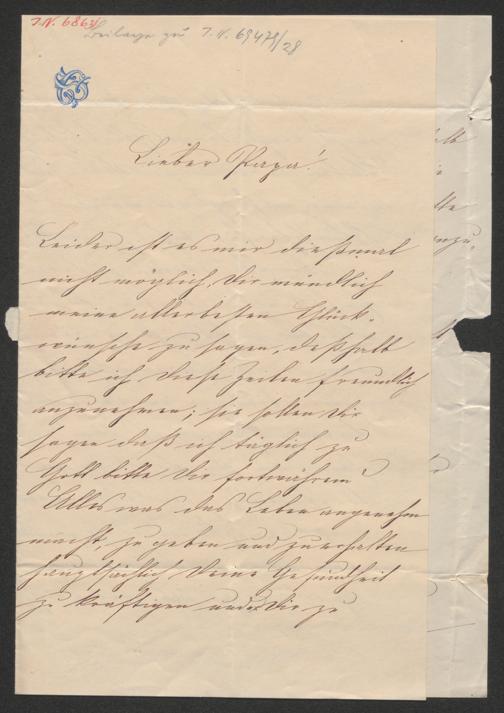 J.N. 6864
Beilage zu J.N. 69479/28
Lieber Papa!
Leider ist es mir dießmal
nicht möglich, Dir mündlich
meine allerbesten Glück-
wünsche zu sagen, deßhalb
bitte ich diese Zeilen freundlich
anzunehmen; sie sollen Dir
sagen daß ich täglich zu
Gott bitte Dir fortwährend
Alles was das Leben angenehm
macht, zu geben und zu erhalten
hauptsächlich Deine Gesundheit
zu kräftigen und Dir zu